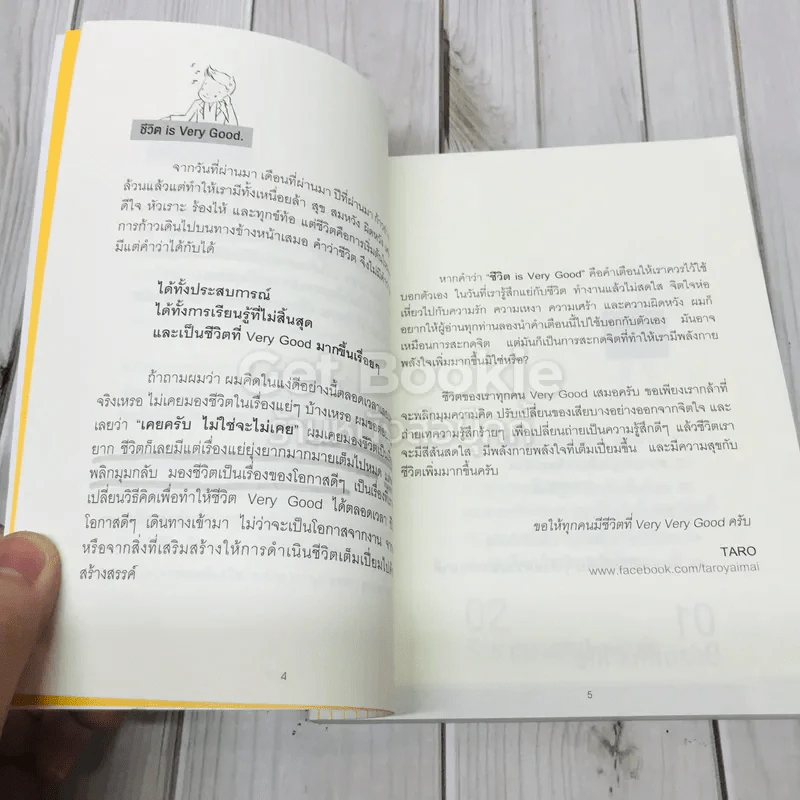 ชีวิต is Very Good.
จากวันที่ผ่านมา เดือนที่ผ่านมา ปีที่ผ่านมา
ล้วนแล้วแต่ทำให้เรามีทั้งเหนื่อยล้า สุข สมหวัง ผิดหวัง
ดีใจ หัวเราะ ร้องไห้ และทุกข์ท้อ แต่ชีวิตคือการเริ่มต้น
การก้าวเดินไปบนทางข้างหน้าเสมอ คำว่าชีวิต จึงไม่มี
มีแต่คำว่าได้กับได้
ได้ทั้งประสบการณ์
ได้ทั้งการเรียนรู้ที่ไม่สิ้นสุด
และเป็นชีวิตที่ Very Good มากขึ้นเรื่อยๆ
ถ้าถามผมว่า ผมคิดในแง่ดีอย่างนี้ตลอดเวลา
จริงเหรอ ไม่เคยมองชีวิตในเรื่องแย่ๆ บ้างเหรอ ผมขอ
เลยว่า “เคยครับ ไม่ใช่จะไม่เคย” ผมเคยมองชีวิตเป็น
ยาก ชีวิตก็เลยมีแต่เรื่องแย่ยุ่งยากมากมายเต็มไปหมด
พลิกมุมกลับ มองชีวิตเป็นเรื่องของโอกาสดีๆ เป็นเรื่อง
เปลี่ยนวิธีคิดเพื่อทำให้ชีวิต Very Good ได้ตลอดเวลา
โอกาสดีๆ เดินทางเข้ามา ไม่ว่าจะเป็นโอกาสจากงาน
หรือจากสิ่งที่เสริมสร้างให้การดำเนินชีวิตเต็มเปี่ยมไป
สร้างสรรค์
4
หากคำว่า “ชีวิต is Very Good” คือคำเตือนให้เราควรไว้ใช้
บอกตัวเอง ในวันที่เรารู้สึกแย่กับชีวิต ทำงานแล้วไม่สดใส จิตใจห่อ
เหี่ยวไปกับความรัก ความเหงา ความเศร้า และความผิดหวัง ผมก็
อยากให้ผู้อ่านทุกท่านลองนำคำเตือนนี้ไปใช้บอกกับตัวเอง มันอาจ
เหมือนการสะกดจิต แต่มันก็เป็นการสะกดจิตที่ทำให้เรามีพลังกาย
พลังใจเพิ่มมากขึ้นมิใช่หรือ?
ชีวิตของเราทุกคน Very Good เสมอครับ ขอเพียงเรากล้าที่
จะพลิกมุมความคิด ปรับเปลี่ยนของเสียบางอย่างออกจากจิตใจ และ
ถ่ายเทความรู้สึกร้ายๆ เพื่อเปลี่ยนถ่ายเป็นความรู้สึกดีๆ แล้วชีวิตเรา
จะมีสีสันสดใส มีพลังกายพลังใจที่เต็มเปี่ยมขึ้น และมีความสุขกับ
ชีวิตเพิ่มมากขึ้นครับ
ขอให้ทุกคนมีชีวิตที่ Very Very Good ครับ
TARO
www.facebook.com/taroyaimai
5
Get Bookie